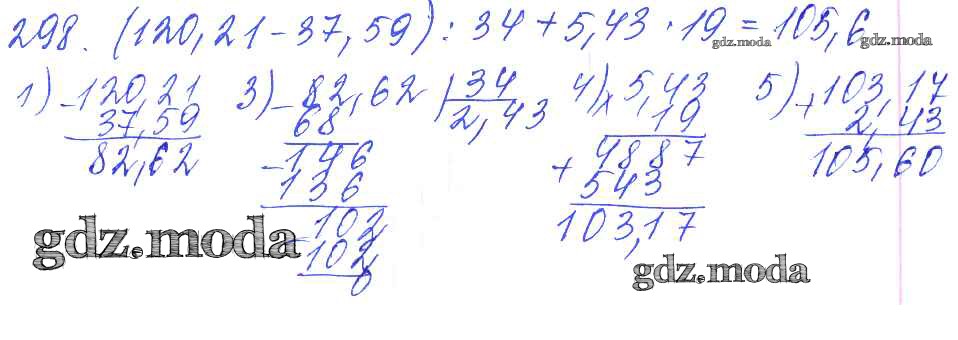 298. (120,21 - 37,59) : 34 + 5,43 · 19 = 105,6
gdz.moda gdz.moda
1) - 120,21
37,59
82,62
3) - 82,62 | 34
68 2,43
- 146
136
- 102
102
0
4) x 5,43
19
+ 4887
543
103,17
5) + 103,17
2,43
105,60
gdz.moda
gdz.moda